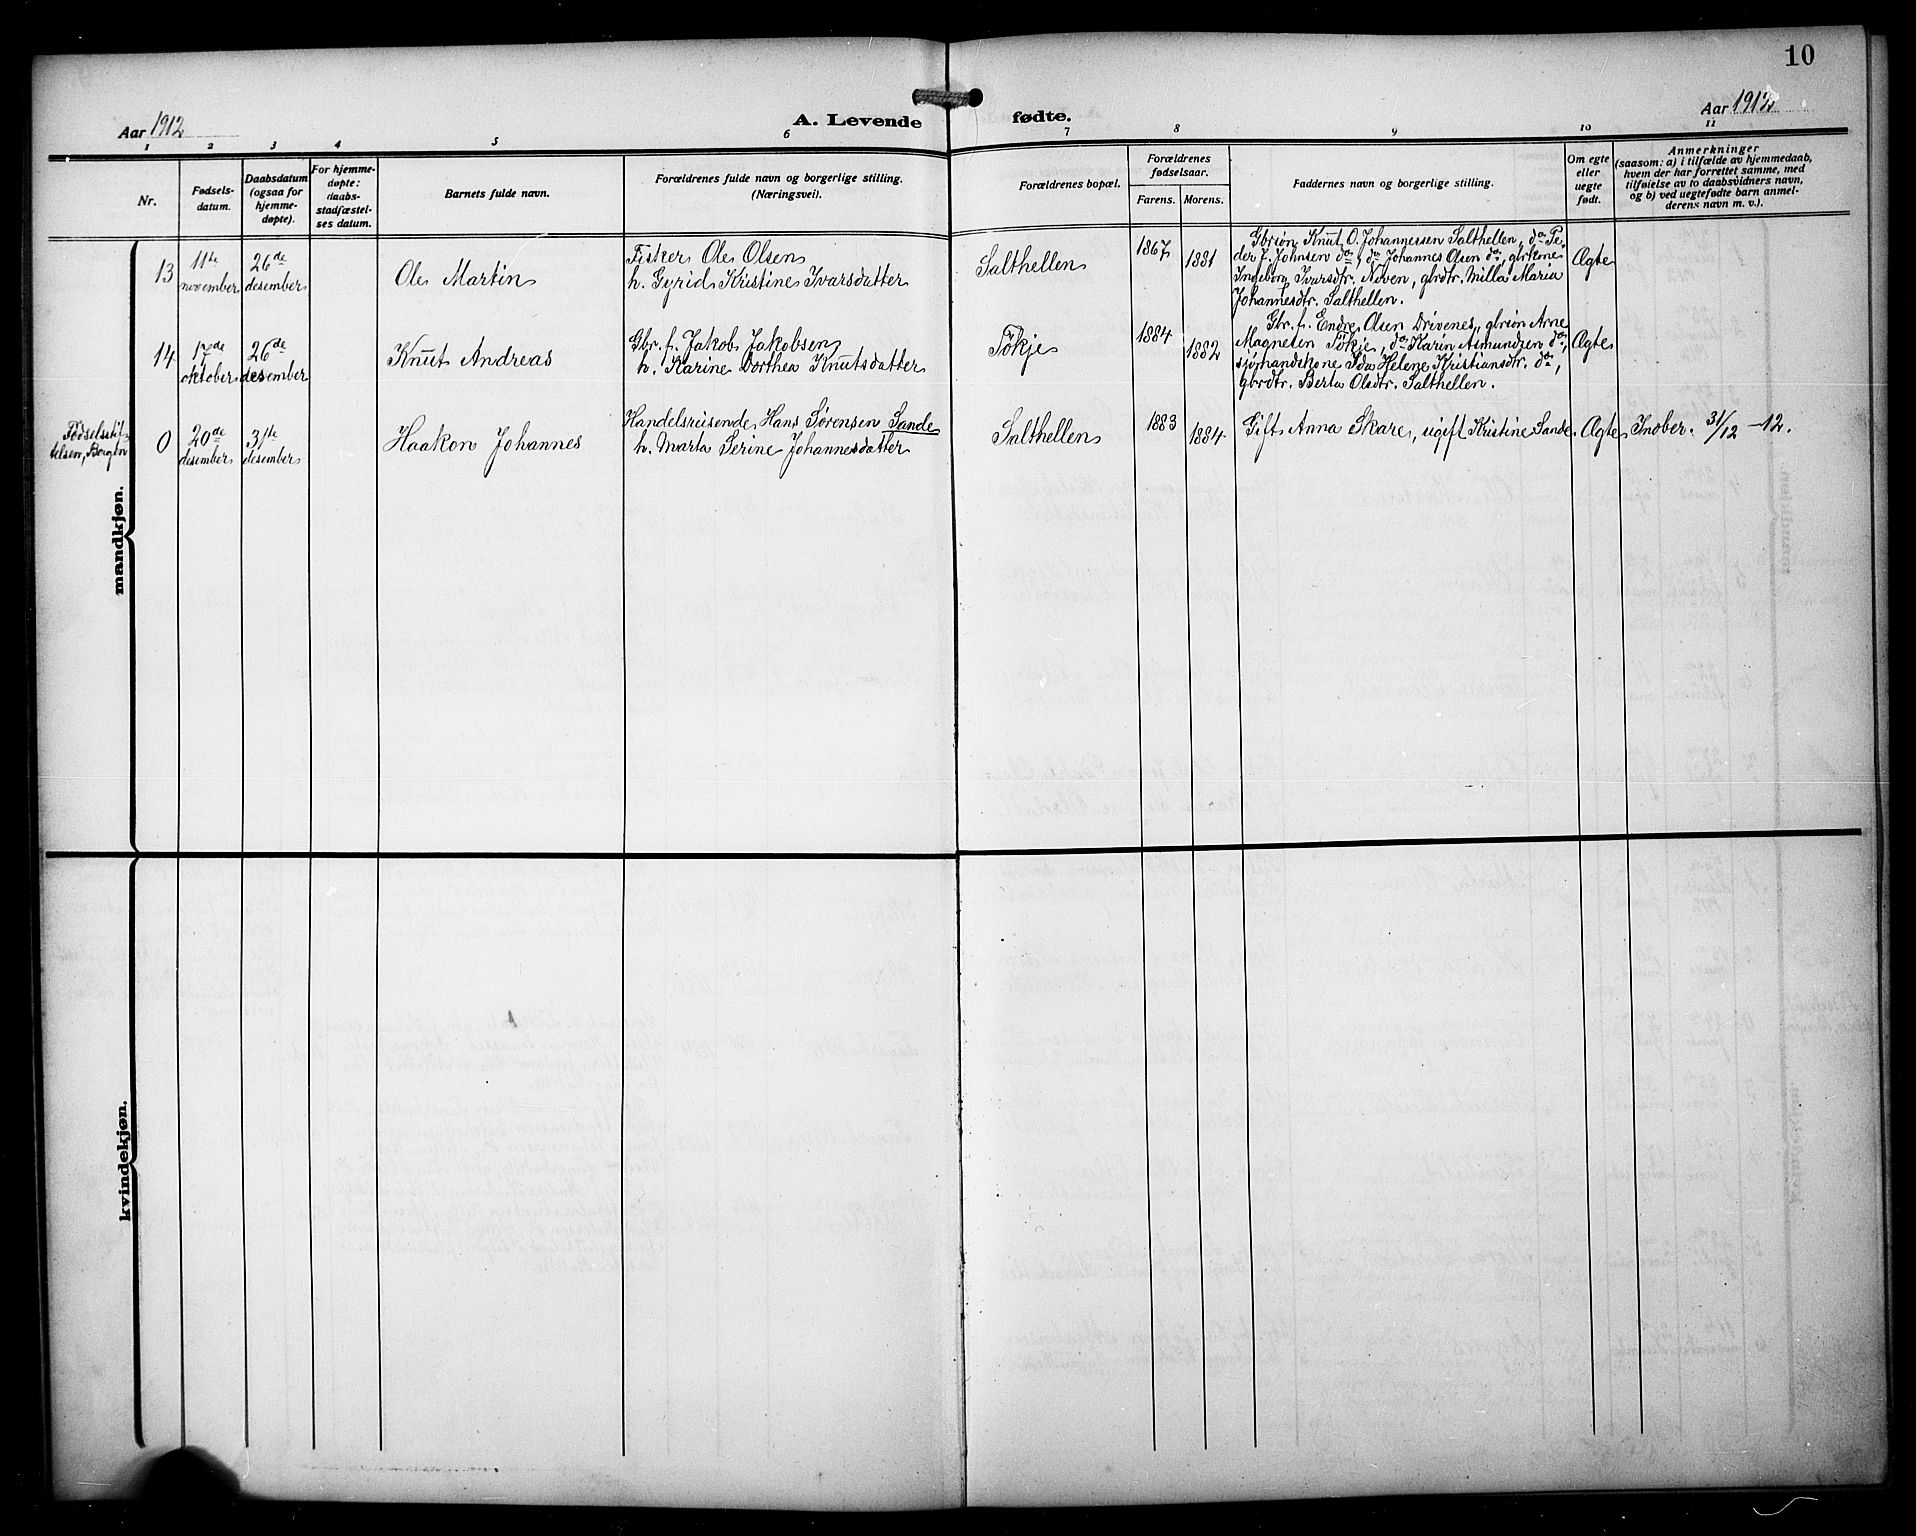 10
Aar 1912
A. Levende
fødte.
Aar 1912
1 2 3 4 5 6 7 8 9 10 11
Nr.
Fødsels-
datum.
Daabsdatum
(ogsaa for
hjemme-
døpte).
For hjemme-
døpte:
daabs-
stadfæstel-
ses datum.
Barnets fulde navn.
Forældrenes fulde navn og borgerlige stilling.
(Næringsvei).
Forældrenes bopæl.
Forældrenes
fødselsaar.
Farens. Morens.
Faddernes navn og borgerlige stilling.
Om egte
eller
uegte
født.
Anmerkninger
(saasom: a) i tilfælde av hjemmedaab,
hvem der har forrettet samme, med
tilføielse av to daabsvidners navn,
og b) ved uegtefødte barn anmel-
derens navn m. v.).
mandkjøn.
13
11te
november
26de
desember
Ole Martin
Fisker Ole Olsen
h. Gyrid Kristine Ivarsdatter
Salthellen
1867
1881
Gbrsøn Knut O. Johannessen Salthellen, do Pe-
der J. Johnsen do, do Johannes Olsen do, gbrkone
Ingeborg Ivarsdtr. Neven, gbrdtr. Milla Maria
Johannesdtr. Salthellen.
Ægte
14
17de
oktober
26de
desember
Knut Andreas
Gbr. f. Jakob Jakobsen
h. Karine Dorthea Knutsdatter
Tökje
1884
1882
Gbr. f. Endre Olsen Drivenes, gbrsøn Arne
Magnesen Tökje, do Karin Asmundsen do,
sjømandskone Ida Helene Kristiansdtr. do,
gbrdtr. Berta Olsdtr. Salthellen.
Ægte
Fødselsstif-
telsen, Bergen
0
20de
desember
31te
desember
Haakon Johannes
Handelsreisende Hans Sørensen Sande
h. Marta Serine Johannesdatter
Salthellen
1883
1884
Gift Anna Skare, ugift Kristine Sande.
Ægte
Indber. 31/12 -12.
kvindekjøn.